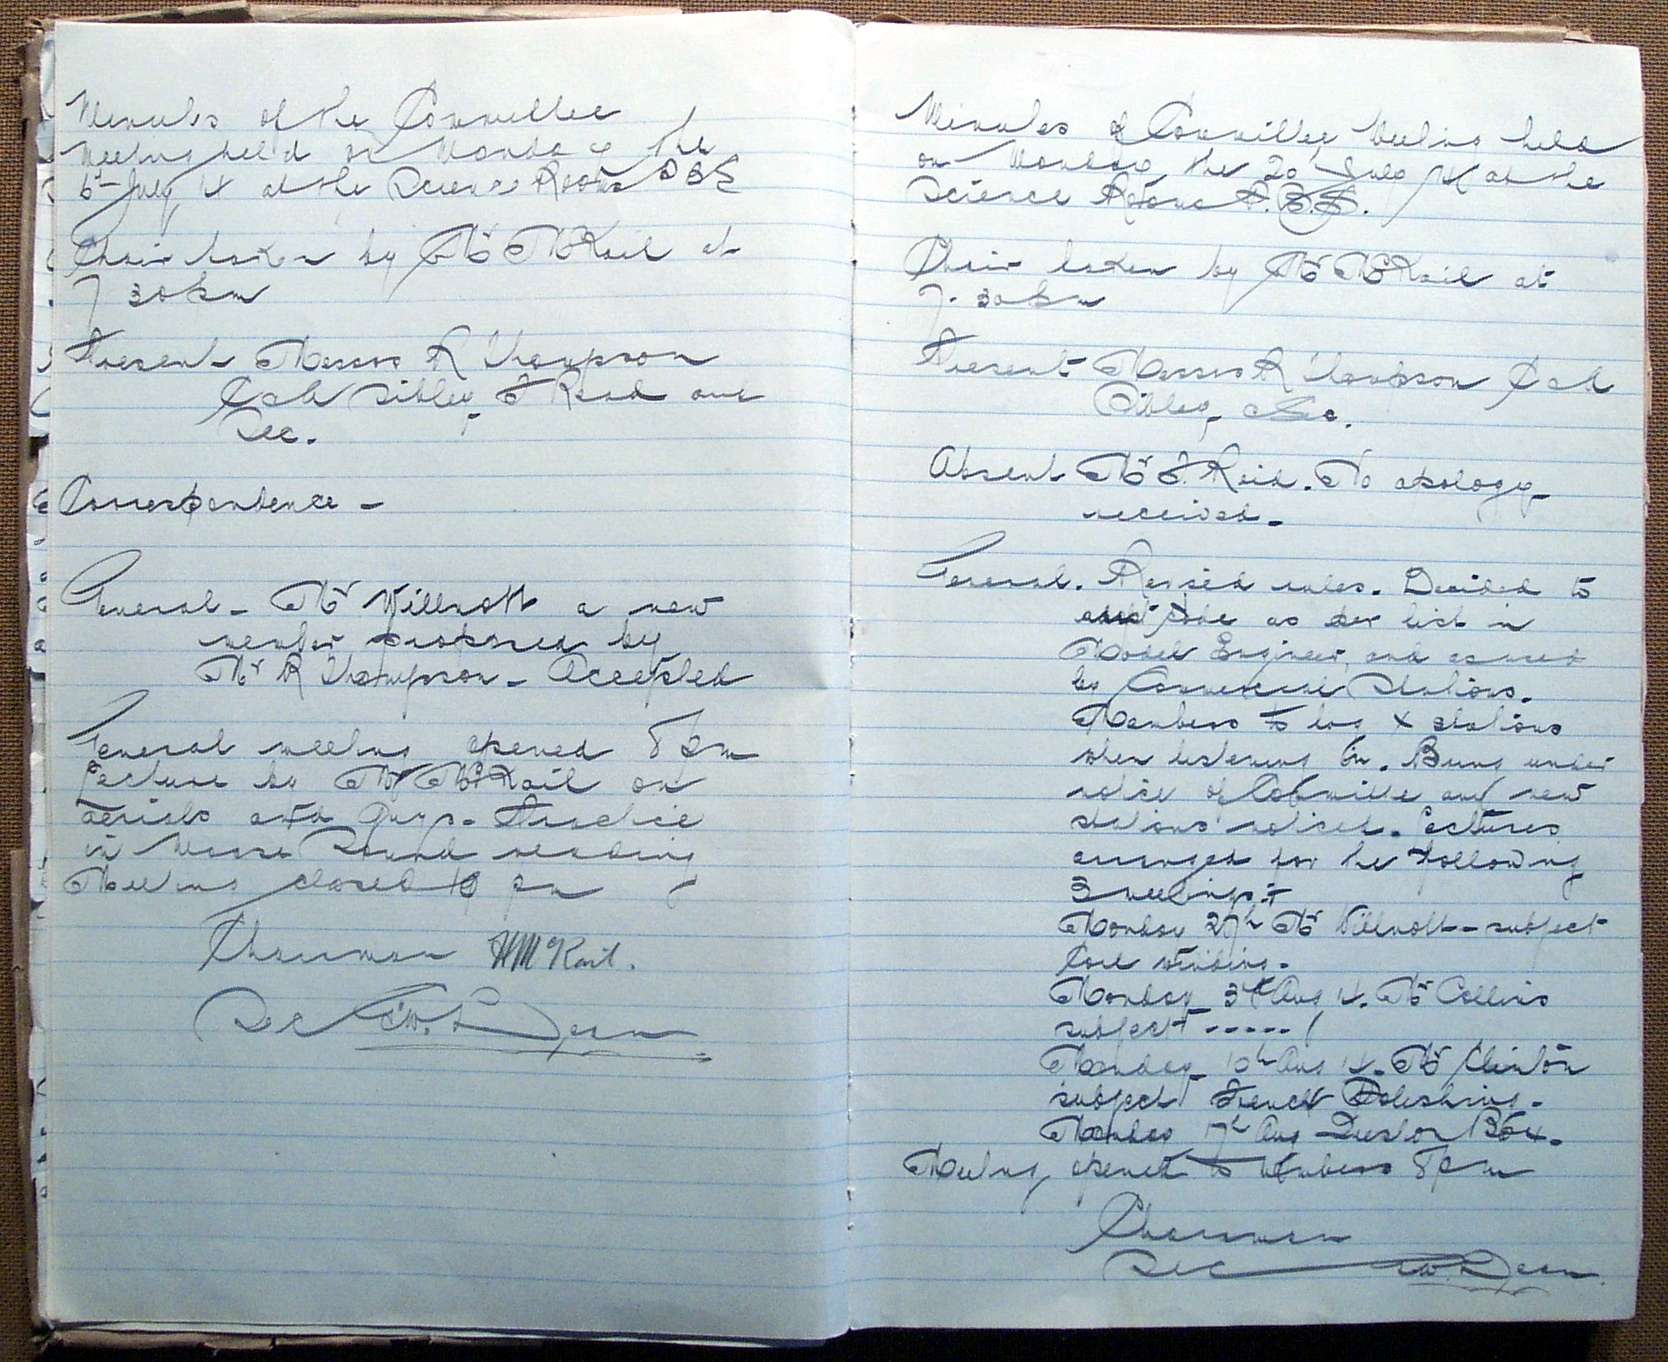 Minutes of the Committee
Meeting held on Monday the
6th July 14 at the Science Rooms
Chair taken by Mr McKail at
7 30pm
Present Messrs R Thompson
Sibley, F Reid and
Sec.
Correspondence -
General - Mr Willmott a new
member proposed by
Mr R Thompson - Accepted
General meeting opened 8 pm
Lecture by Mr McKail on
aerials and Guys - Practice
in Morse Sound reading
Meeting closed 10 pm
Chairman HM McKail.
Sec
Minutes of Committee Meeting held
on Monday the 20th July 14 at the
Science Rooms
Chair taken by Mr McKail at
7.30pm
Present Messrs R Thompson
Sibley Sec.
Absent Mr F. Reid. No apology
received -
General. Revised rules. Decided to
adopt code as per list in
Model Engineer, and as used
by Commercial Stations.
Members to log X stations
when listening in. Bring under
notice of Committee any new
stations noticed. Lectures
arranged for the following
3 meetings:-
Monday 27th Mr Willmott - subject
Coil winding.
Monday 3rd Aug 14. Mr Collins
subject -----
Monday 10th Aug 14. Mr Clinton
subject French Polishing -
Monday 17th Aug Question Box.
Meeting opened to Members 8pm
Chairman
Sec